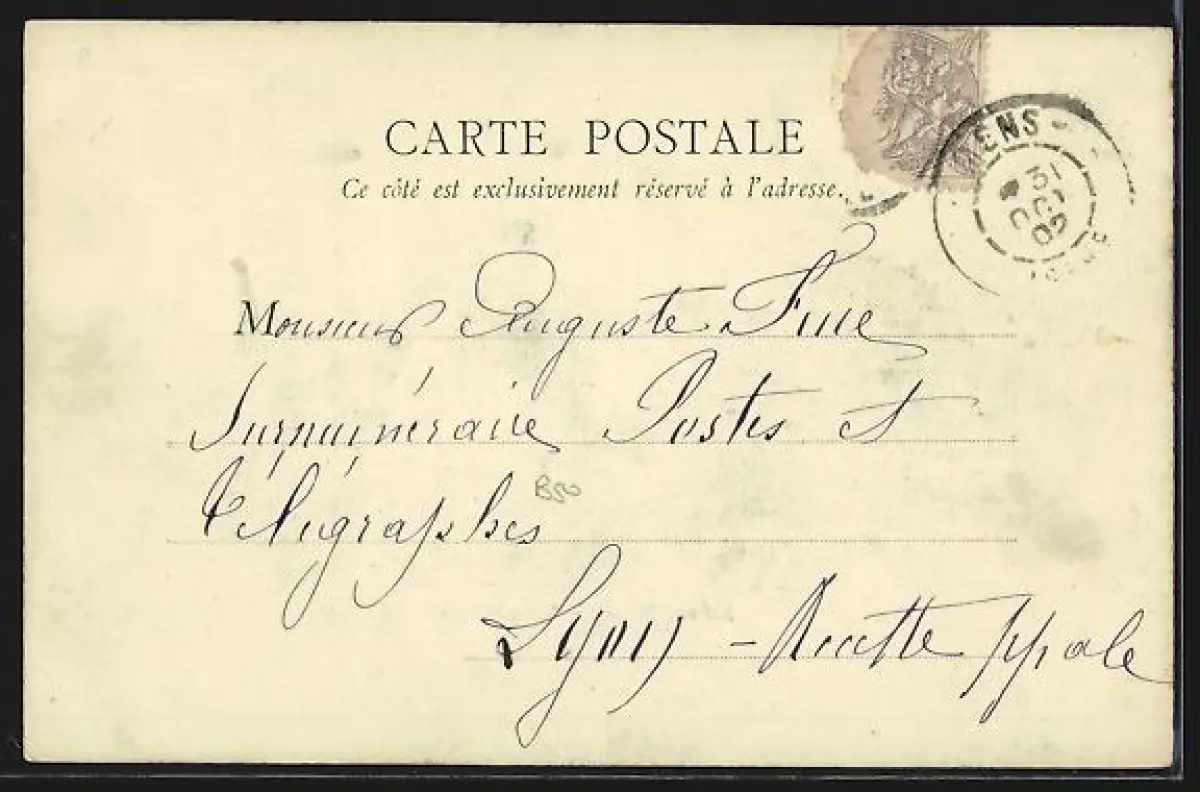 CARTE POSTALE
Ce côté est exclusivement réservé à l'adresse.
ENS
31
02
Monsieur Auguste
Surnuméraire Postes et
Télégraphes
B50
Lyon - Recette ppale